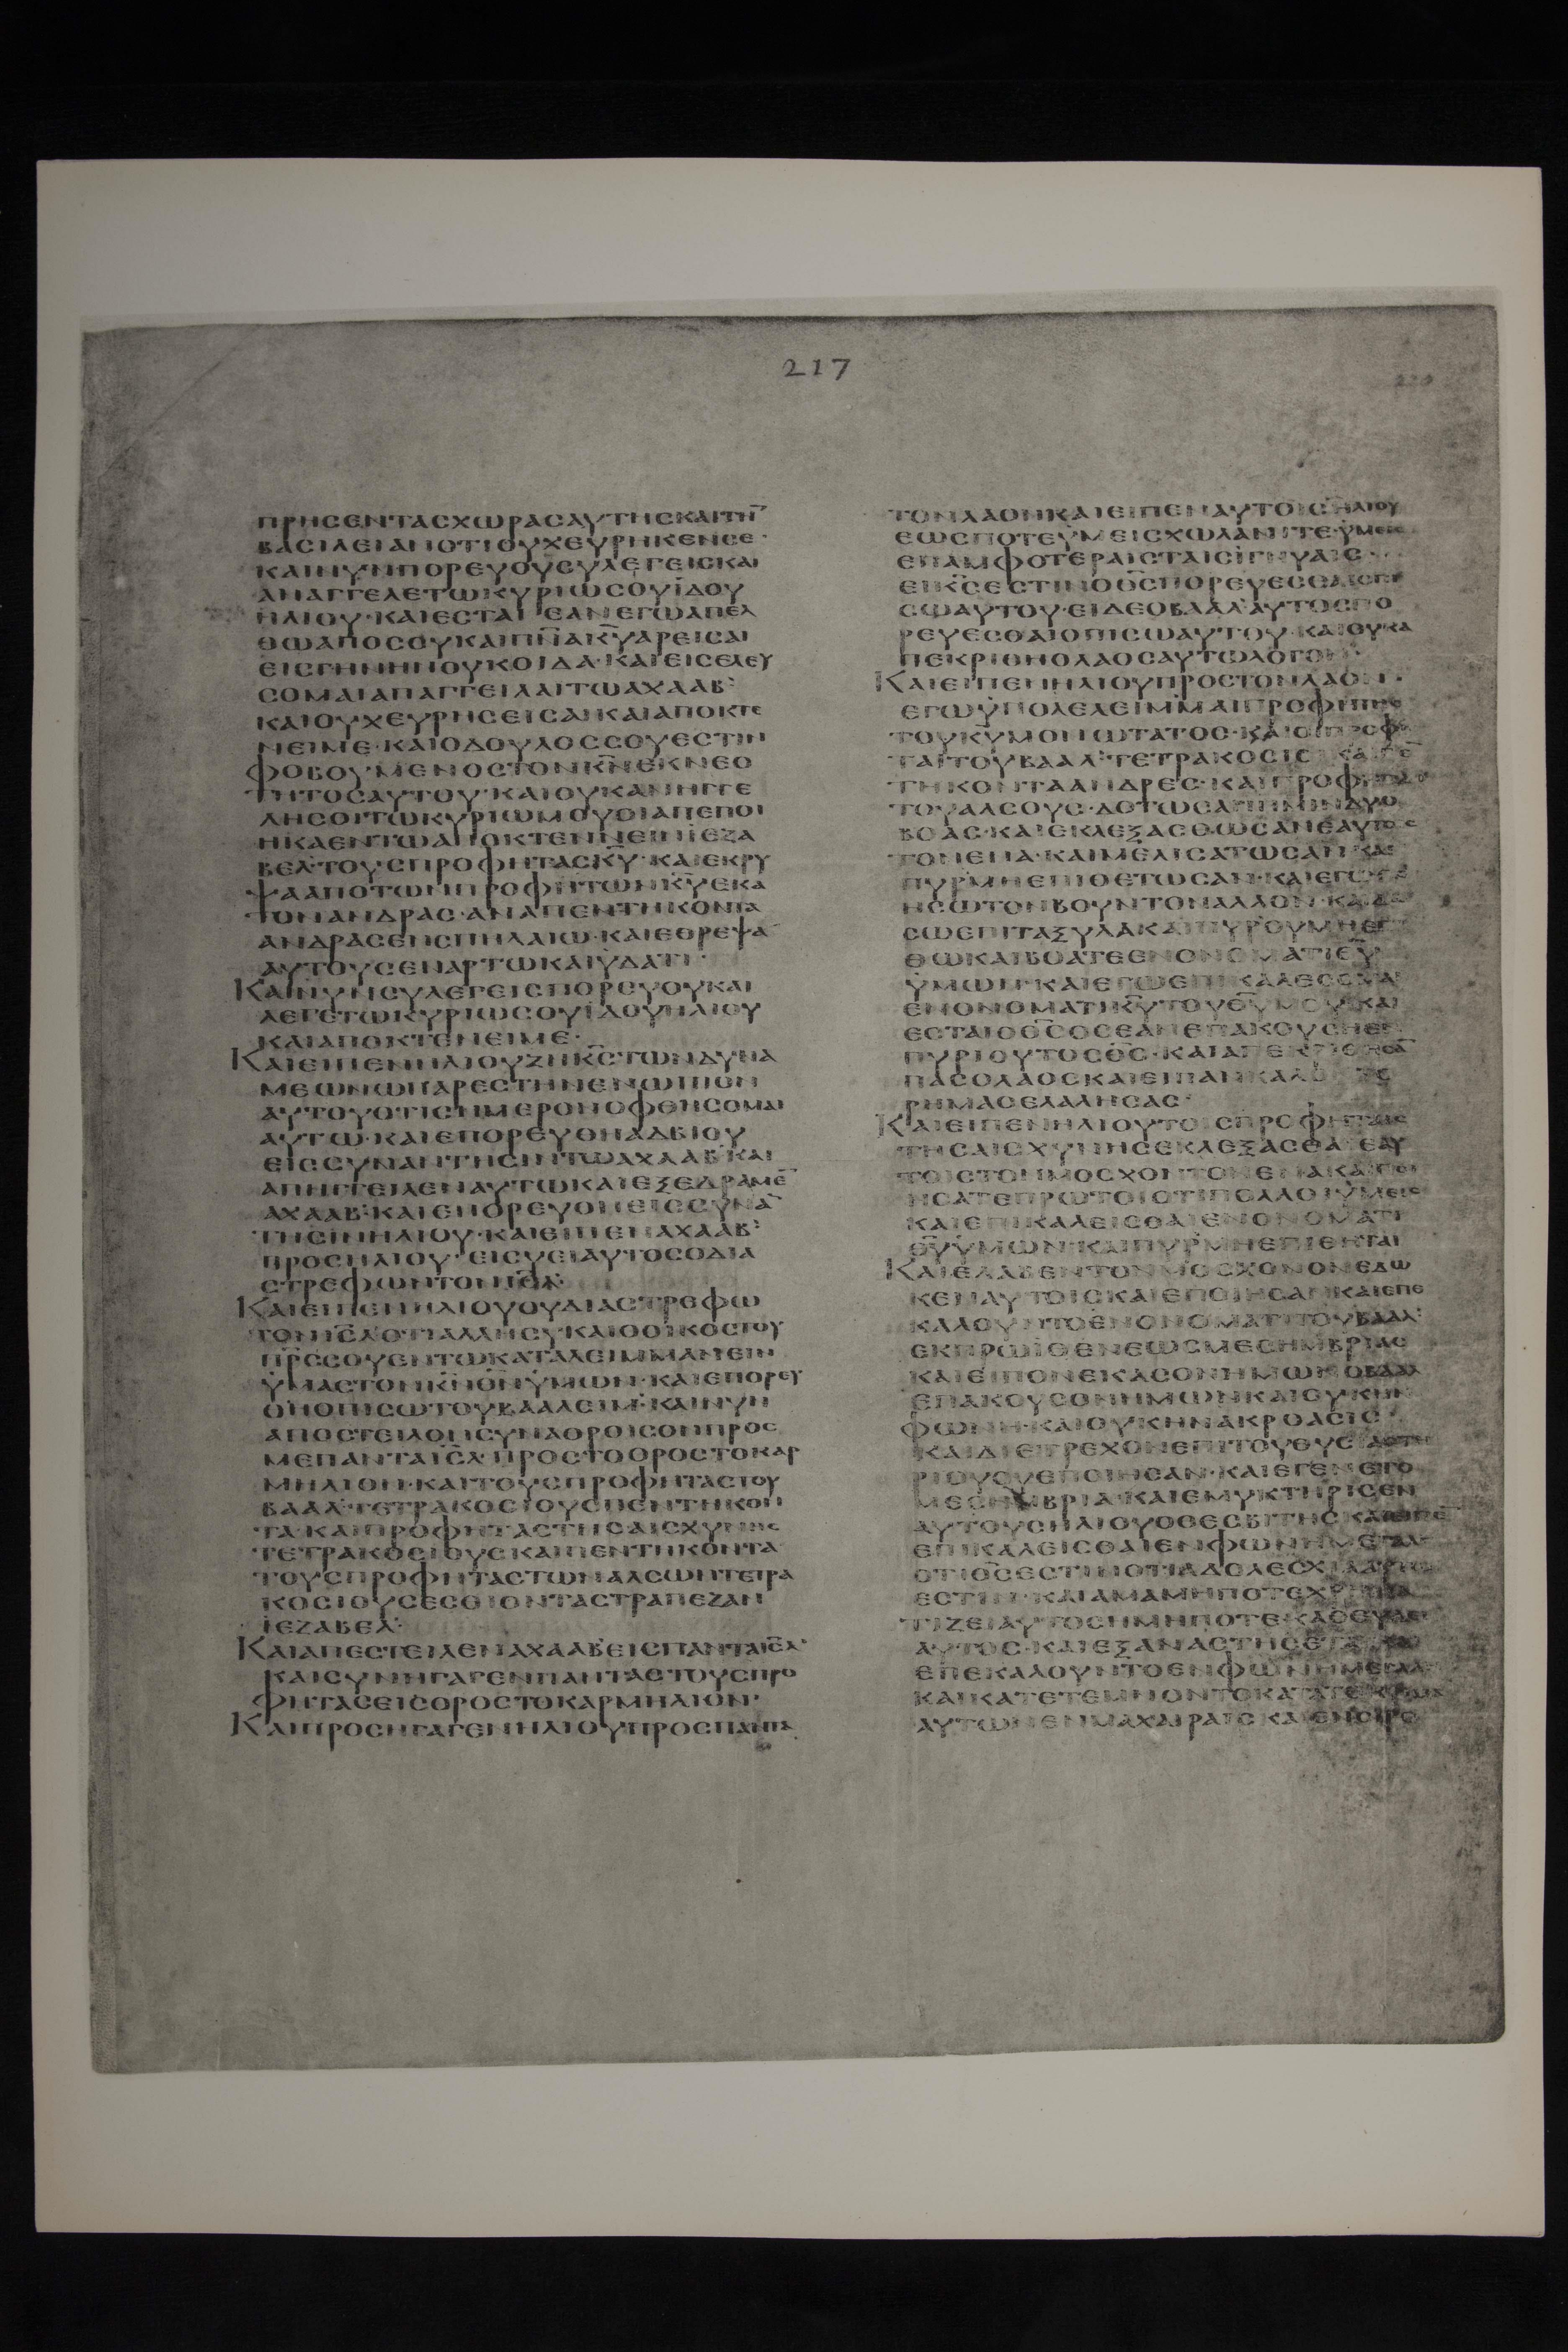 217
ΠΡΗCΕΝΤΑCΧΩΡΑCΑΥΤΗCΚΑΙΤΗ̅
ΒΑCΙΛΕΙΑΝΟΤΙΟΥΧΕΥΡΗΚΕΝCΕ·
ΚΑΙΝΥΝΠΟΡΕΥΟΥCΥΛΕΓΕΙCΚΑΙ
ΑΝΑΓΓΕΛΕΤΩΚΥΡΙΩCΟΥΪΔΟΥ
ΗΛΙΟΥ·ΚΑΙΕCΤΑΙΕΑΝΕΓΩΑΠΕΛ
ΘΩΑΠΟCΟΥΚΑΙΠ̅Ν̅ΑΚ̅Υ̅ΑΡΕΙCΑΙ
ΕΙCΓΗΝΗΝΟΥΚΟΙΔΑ·ΚΑΙΕΙCΕΛΕΥ
CΟΜΑΙΑΠΑΓΓΕΙΛΑΙΤΩΑΧΑΑΒ·
ΚΑΙΟΥΧΕΥΡΗCΕΙCΑΙΚΑΙΑΠΟΚΤΕ
ΝΕΙΜΕ·ΚΑΙΟΔΟΥΛΟCCΟΥΕCΤΙΝ
ΦΟΒΟΥΜΕΝΟCΤΟΝΚ̅Ν̅ΕΚΝΕΟ
ΤΗΤΟCΑΥΤΟΥ·ΚΑΙΟΥΚΑΝΗΓΓΕ
ΛΗCΟΙΤΩΚΥΡΙΩΜΟΥΟΙΑΠΕΠΟΙ
ΗΚΑΕΝΤΩΑΠΟΚΤΕΝΝΕΙΝΪΕΖΑ
ΒΕΛ·ΤΟΥCΠΡΟΦΗΤΑCΚ̅Υ̅·ΚΑΙΕΚΡΥ
ΨΑΑΠΟΤΩΝΠΡΟΦΗΤΩΝΚ̅Υ̅ΕΚΑ
ΤΟΝΑΝΔΡΑC·ΑΝΑΠΕΝΤΗΚΟΝΤΑ
ΑΝΔΡΑCΕΝCΠΗΛΑΙΩ·ΚΑΙΕΘΡΕΨΑ
ΑΥΤΟΥCΕΝΑΡΤΩΚΑΙΫΔΑΤΙ·
ΚΑΙΝΥΝCΥΛΕΓΕΙCΠΟΡΕΥΟΥΚΑΙ
ΛΕΓΕΤΩΚΥΡΙΩCΟΥΪΔΟΥΗΛΙΟΥ
ΚΑΙΑΠΟΚΤΕΝΕΙΜΕ·
ΚΑΙΕΙΠΕΝΗΛΙΟΥΖΗΚ̅C̅ΤΩΝΔΥΝΑ
ΜΕΩΝΩΠΑΡΕCΤΗΝΕΝΩΠΙΟΝ
ΑΥΤΟΥΟΤΙCΗΜΕΡΟΝΟΦΘΗCΟΜΑΙ
ΑΥΤΩ·ΚΑΙΕΠΟΡΕΥΘΗΑΔΒΙΟΥ
ΕΙCCΥΝΑΝΤΗCΙΝΤΩΑΧΑΑΒ·ΚΑΙ
ΑΠΗΓΓΕΙΛΕΝΑΥΤΩΚΑΙΕΞΕΔΡΑΜΕ̅
ΑΧΑΑΒ·ΚΑΙΕΠΟΡΕΥΘΗΕΙCCΥΝΑ̅
ΤΗCΙΝΗΛΙΟΥ·ΚΑΙΕΙΠΕΝΑΧΑΑΒ·
ΠΡΟCΗΛΙΟΥ·ΕΙCΥΕΙΑΥΤΟCΟΔΙΑ
CΤΡΕΦΩΝΤΟΝΙ̅Η̅Λ̅·
ΚΑΙΕΙΠΕΝΗΛΙΟΥΟΥΔΙΑCΤΡΕΦΩ
ΤΟΝΙ̅C̅Λ̅ΟΤΙΑΛΛΗCΥΚΑΙΟΟΙΚΟCΤΟΥ
Π̅Ρ̅C̅CΟΥΕΝΤΩΚΑΤΑΛΕΙΜΜΑΝΕΙΝ
ΫΜΑCΤΟΝΚ̅Ν̅Θ̅Ν̅ΫΜΩΝ·ΚΑΙΕΠΟΡΕΥ
ΟΝΟΠΙCΩΤΟΥΒΑΑΛΕΙΜ·ΚΑΙΝΥΝ
ΑΠΟCΤΕΙΛΟΝCΥΝΑΘΡΟΙCΟΝΠΡΟC
ΜΕΠΑΝΤΑΙ̅C̅Λ̅·ΠΡΟCΤΟΟΡΟCΤΟΚΑΡ
ΜΗΛΙΟΝ·ΚΑΙΤΟΥCΠΡΟΦΗΤΑCΤΟΥ
ΒΑΑΛ·ΤΕΤΡΑΚΟCΙΟΥCΠΕΝΤΗΚΟΝ
ΤΑ·ΚΑΙΠΡΟΦΗΤΑCΤΗCΑΙCΧΥΝΗC
ΤΕΤΡΑΚΟCΙΟΥCΚΑΙΠΕΝΤΗΚΟΝΤΑ
ΤΟΥCΠΡΟΦΗΤΑCΤΩΝΑΛCΩΝΤΕΤΡΑ
ΚΟCΙΟΥCΕCΘΙΟΝΤΑCΤΡΑΠΕΖΑΝ
ΪΕΖΑΒΕΛ·
ΚΑΙΑΠΕCΤΕΙΛΕΝΑΧΑΑΒΕΙCΠΑΝΤΑΙ̅C̅Λ̅·
ΚΑΙCΥΝΗΓΑΓΕΝΠΑΝΤΑCΤΟΥCΠΡΟ
ΦΗΤΑCΕΙCΟΡΟCΤΟΚΑΡΜΗΛΙΟΝ·
ΚΑΙΠΡΟCΗΓΑΓΕΝΗΛΙΟΥΠΡΟCΠΑΝΤΑ
ΤΟΝΛΑΟΝΚΑΙΕΙΠΕΝΑΥΤΟΙCΗΛΙΟΥ
ΕΩCΠΟΤΕΫΜΕΙCΧΩΛΑΝΙΤΕΫΜΕΙC
ΕΠΑΜΦΟΤΕΡΑΙCΤΑΙCΙΓΝΥΑΙC·
ΕΙΚ̅C̅ΕCΤΙΝΟΘ̅C̅ΠΟΡΕΥΕCΘΑΙΟΠΙ
CΩΑΥΤΟΥ·ΕΙΔΕΟΒΑΑΛΑΥΤΟCΠΟ
ΡΕΥΕCΘΑΙΟΠΙCΩΑΥΤΟΥ·ΚΑΙΟΥΚΑ
ΠΕΚΡΙΘΗΟΛΑΟCΑΥΤΩΛΟΓΟΝ·
ΚΑΙΕΙΠΕΝΗΛΙΟΥΠΡΟCΤΟΝΛΑΟΝ·
ΕΓΩΫΠΟΛΕΛΕΙΜΜΑΙΠΡΟΦΗΤΗC
ΤΟΥΚ̅Υ̅ΜΟΝΩΤΑΤΟC·ΚΑΙΟΙΠΡΟΦΗ
ΤΑΙΤΟΥΒΑΑΛ·ΤΕΤΡΑΚΟCΙΟΙΚΑΙΠΕ̅
ΤΗΚΟΝΤΑΑΝΔΡΕC·ΚΑΙΠΡΟΦΗΤΑΙ
ΤΟΥΑΛCΟΥC·ΔΟΤΩCΑΝΗΜΙΝΔΥΟ
ΒΟΑC·ΚΑΙΕΚΛΕΞΑCΘΩCΑΝΕΑΥΤΟΙC
ΤΟΝΕΝΑ·ΚΑΙΜΕΛΙCΑΤΩCΑΝΚΑΙ
ΠΥΡΜΗΕΠΙΘΕΤΩCΑΝ·ΚΑΙΕΓΩΠΟΙ
ΗCΩΤΟΝΒΟΥΝΤΟΝΑΛΛΟΝ·ΚΑΙΔΩ
CΩΕΠΙΤΑΞΥΛΑΚΑΙΠΥΡΟΥΜΗΕΠΙ
ΘΩΚΑΙΒΟΑΤΕΕΝΟΝΟΜΑΤΙΘ̅Υ̅
ΫΜΩΝ·ΚΑΙΕΓΩΕΠΙΚΑΛΕCΟΜΑΙ
ΕΝΟΝΟΜΑΤΙΚ̅Υ̅ΤΟΥΘ̅Υ̅ΜΟΥΚΑΙ
ΕCΤΑΙΟΘ̅C̅ΟCΕΑΝΕΠΑΚΟΥCΗΕΝ
ΠΥΡΙΟΥΤΟCΘ̅C̅·ΚΑΙΑΠΕΚΡΙΘΗCΑ̅
ΠΑCΟΛΑΟCΚΑΙΕΙΠΑΝΚΑΛΟΝΤΟ
ΡΗΜΑΟΕΛΑΛΗCΑC·
ΚΑΙΕΙΠΕΝΗΛΙΟΥΤΟΙCΠΡΟΦΗΤΑΙC
ΤΗCΑΙCΧΥΝΗCΕΚΛΕΞΑCΘΑΙΕΑΥ
ΤΟΙCΤΟΝΜΟCΧΟΝΤΟΝΕΝΑΚΑΙΠΟΙ
ΗCΑΤΕΠΡΩΤΟΙΟΤΙΠΟΛΛΟΙΫΜΕΙC
ΚΑΙΕΠΙΚΑΛΕΙCΘΑΙΕΝΟΝΟΜΑΤΙ
Θ̅Υ̅ΫΜΩΝ·ΚΑΙΠΥΡΜΗΕΠΙΕΗΤΑΙ
ΚΑΙΕΛΑΒΕΝΤΟΝΜΟCΧΟΝΟΝΕΔΩ
ΚΕΝΑΥΤΟΙCΚΑΙΕΠΟΙΗCΑΝΚΑΙΕΠΕ
ΚΑΛΟΥΝΤΟΕΝΟΝΟΜΑΤΙΤΟΥΒΑΑΛ·
ΕΚΠΡΩΪΘΕΝΕΩCΜΕCΗΜΒΡΙΑC
ΚΑΙΕΙΠΟΝΕΚΑCΟΝΗΜΩΝΟΒΑΑΛ
ΕΠΑΚΟΥCΟΝΗΜΩΝΚΑΙΟΥΚΗΝ
ΦΩΝΗ·ΚΑΙΟΥΚΗΝΑΚΡΟΑCΙC·
ΚΑΙΔΙΕΤΡΕΧΟΝΕΠΙΤΟΥΘΥCΙΑCΤΗ
ΡΙΟΥΟΥΕΠΟΙΗCΑΝ·ΚΑΙΕΓΕΝΕΤΟ
ΜΕCΗΜΒΡΙΑ·ΚΑΙΕΜΥΚΤΗΡΙCΕΝ
ΑΥΤΟΥCΗΛΙΟΥΟΘΕCΒΙΤΗCΚΑΙΕΙΠΕ̅
ΕΠΙΚΑΛΕΙCΘΑΙΕΝΦΩΝΗΜΕΓΑΛΗ
ΟΤΙΘ̅C̅ΕCΤΙΝΟΤΙΑΔΟΛΕCΧΙΑΑΥΤΩ
ΕCΤΙΝ·ΚΑΙΑΜΑΜΗΠΟΤΕΧΡΗΜΑ
ΤΙΖΕΙΑΥΤΟCΗΜΗΠΟΤΕΚΑΘΕΥΔΕΙ
ΑΥΤΟC·ΚΑΙΕΞΑΝΑCΤΗCΕΤΑΙΚΑΙ
ΕΠΕΚΑΛΟΥΝΤΟΕΝΦΩΝΗΜΕΓΑΛΗ
ΚΑΙΚΑΤΕΤΕΜΝΟΝΤΟΚΑΤΑ
ΑΥΤΩΝΕΝΜΑΧΑΙΡΑΙCΚΑΙΕΝCΙΡΟ